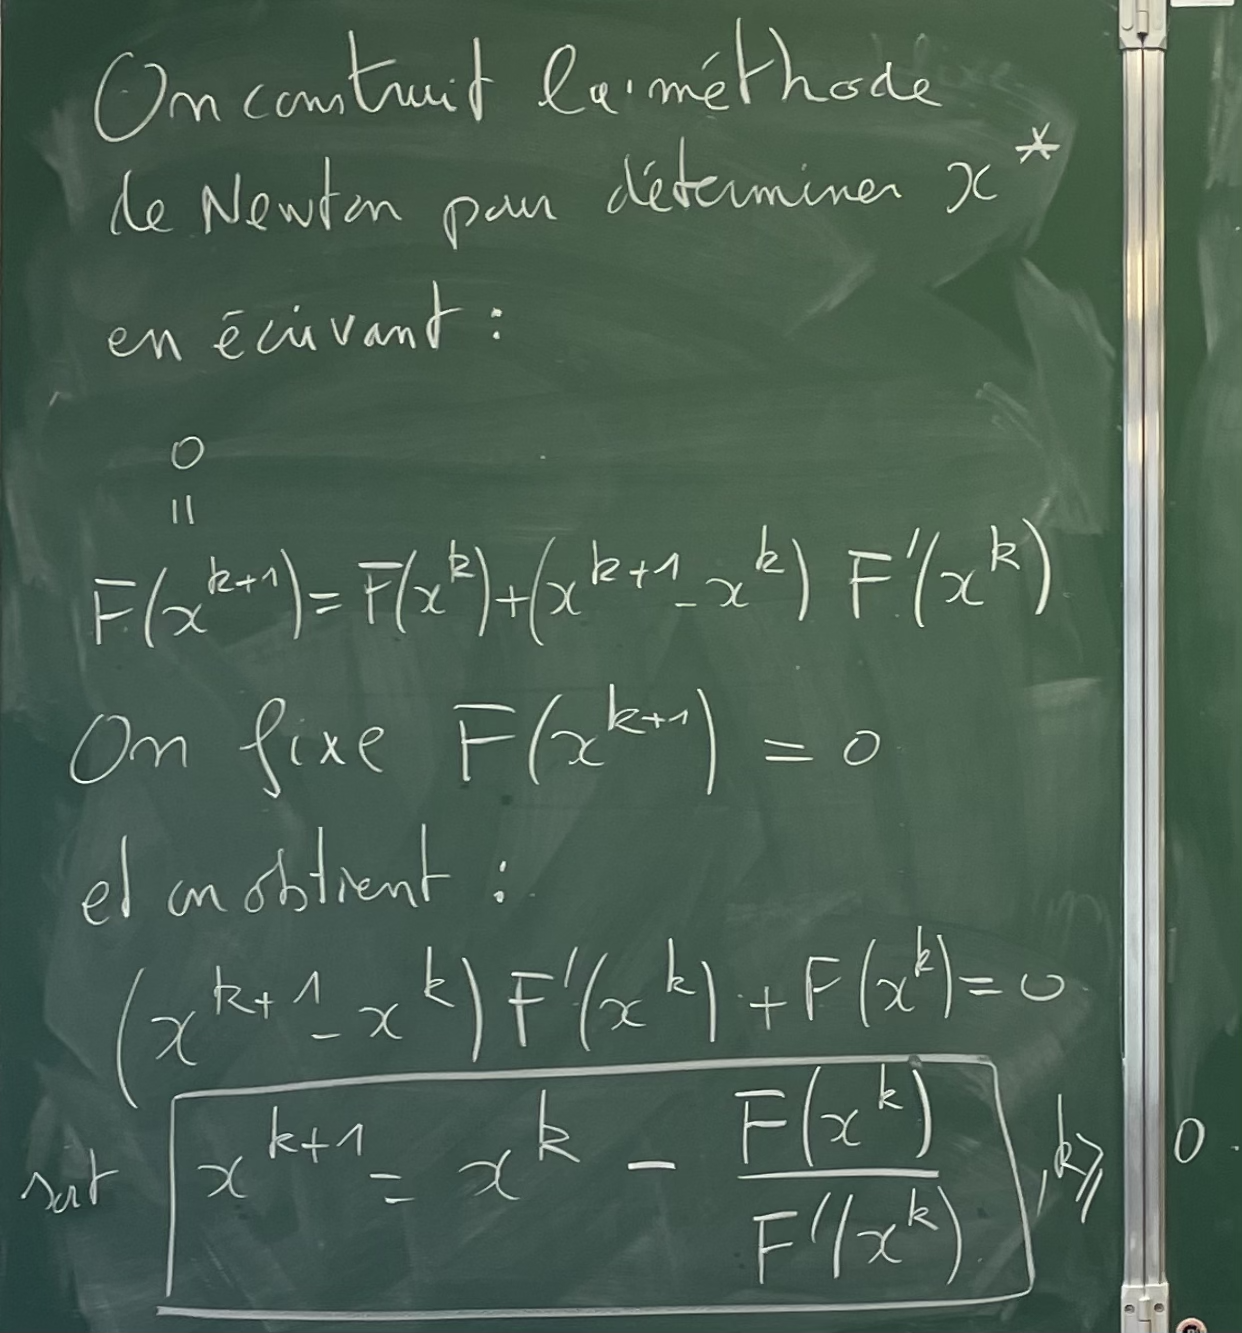 On construit la méthode
de Newton pour déterminer x*
en écrivant :
0
||
F(x^{k+1}) = F(x^k) + (x^{k+1} - x^k) F'(x^k)
On fixe F(x^{k+1}) = 0
et on obtient :
(x^{k+1} - x^k) F'(x^k) + F(x^k) = 0
soit x^{k+1} = x^k - \frac{F(x^k)}{F'(x^k)} , k ⩾ 0.